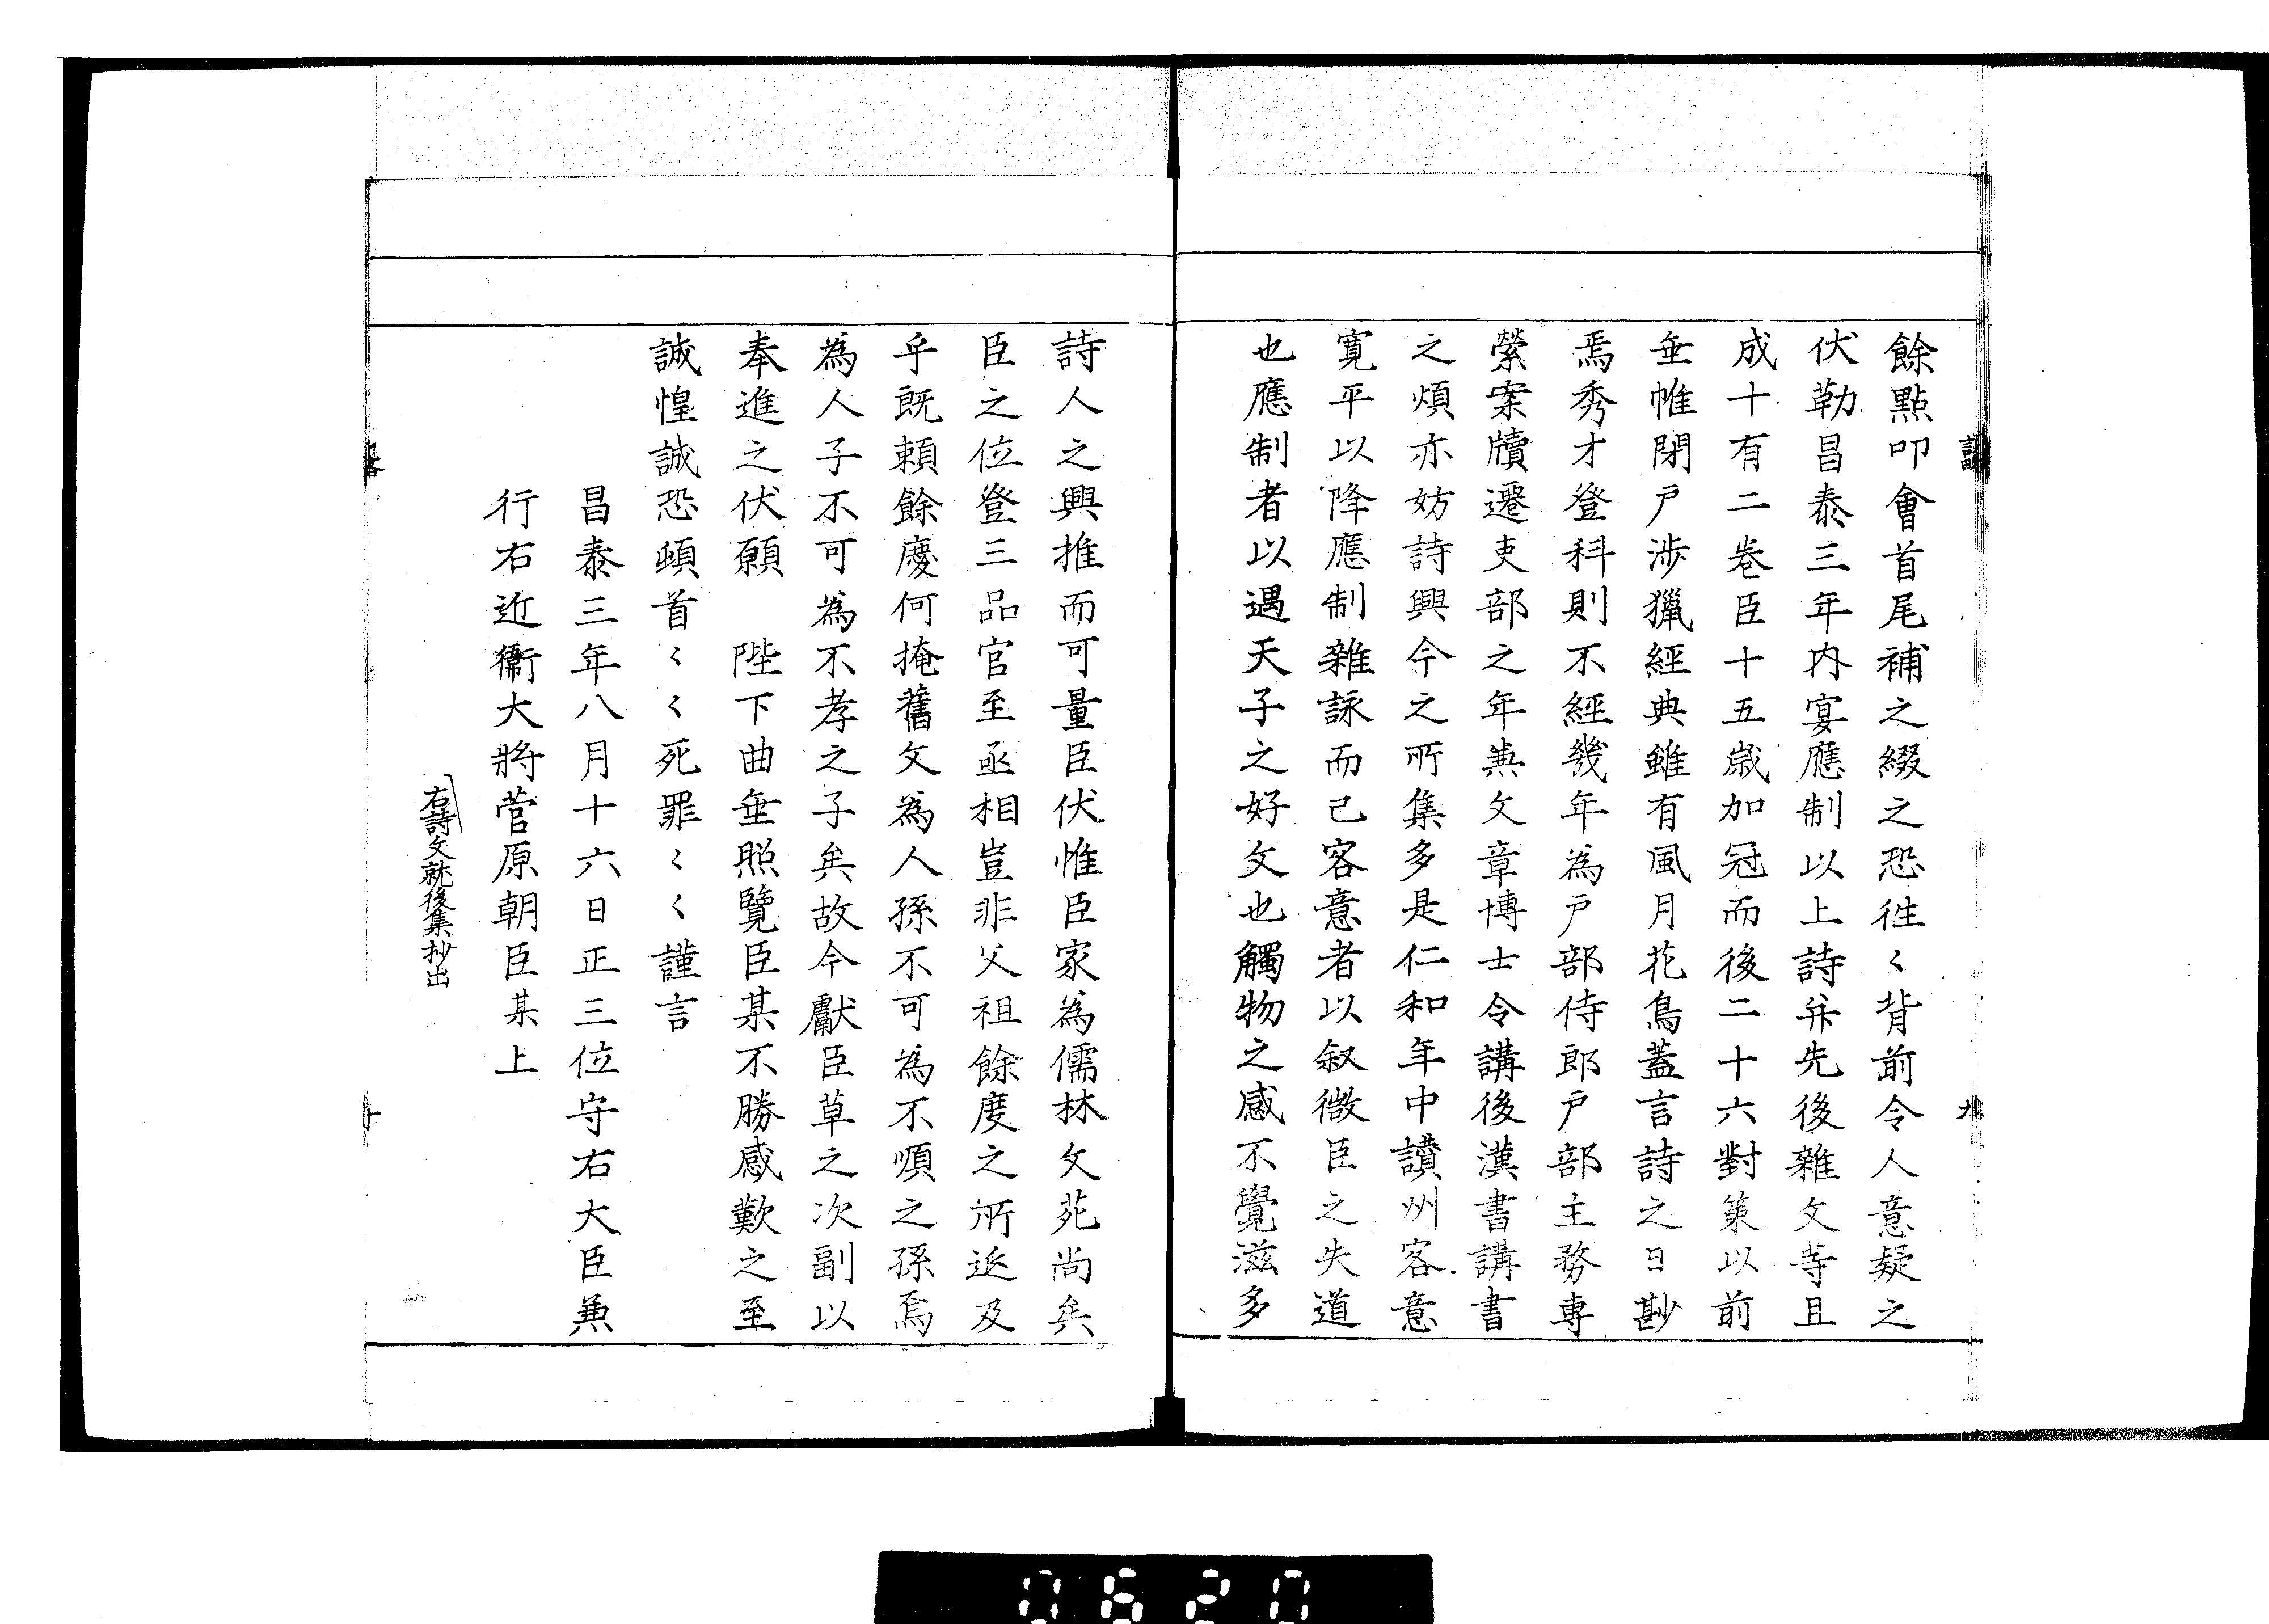 餘點叩會首尾補之綴之恐徃〱背前令人意疑之
伏勒昌泰三年内宴應制以上詩并先後雜文等且
成十有二卷臣十五歳加冠而後二十六對策以前
垂帷閉戸渉獵經典雖有風月花鳥蓋言詩之日尠
焉秀才登科則不經幾年為戸部侍郎戸部主務專
縈案牘遷吏部之年兼文章博士令講後漢書講書
之煩亦妨詩興今之所集多是仁和年中讃州客意
寛平以降應制雜詠而己客意者以叙微臣之失道
也應制者以遇天子之好文也觸物之感不覺滋多
詩人之興推而可量臣伏惟臣家為儒林文苑尚矣
臣之位登三品官至丞相豈非父祖餘慶之所延及
乎既頼餘慶何掩舊文為人孫不可為不順之孫焉
為人子不可為不孝之子矣故今獻臣草之次副以
奉進之伏願　陛下曲垂照覽臣某不勝感歎之至
誠惶誠恐頓首〱〱死罪〱〱謹言
昌泰三年八月十六日正三位守右大臣兼
行右近衞大將菅原朝臣某上
右詩文就後集抄出
九
十
0620